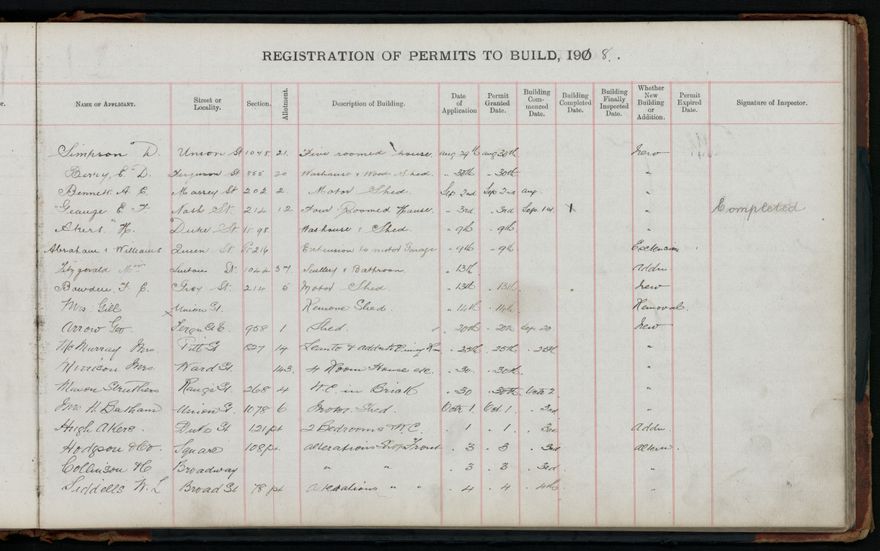 REGISTRATION OF PERMITS TO BUILD, 1908.
r. NAME OF APPLICANT. Street or Locality. Section. Allotment. Description of Building. Date of Application Permit Granted Date. Building Commenced Date. Building Completed Date. Building Finally Inspected Date. Whether New Building or Addition. Permit Expired Date. Signature of Inspector.
Simpson D. Union St 1048 21. Five roomed house. aug 29th aug 30th New
Berry, C. D. Ferguson St 20 Washouse & Wood Shed. " 30th " 30th "
Bennett A. E. Massey St 202 2 Motor Shed. Sep 2nd Sep 2nd aug. "
George E. F. Nash St. 214 12 Four Roomed House. " 3rd " 3rd Sep 1st X " Completed
Akers H. Duke St 98 Washouse & Shed. " 9th " 9th "
Abraham & Williams Queen St 216 Extension to motor Garage " 9th " 9th Extension
Fitzgerald Mrs St. 1044 37 Scullery & Bathroom " 13th Addn
Bowden F. C. Grey St. 214 5 Motor Shed " 13th " 13th New
Mrs Gill Union St. Remove Shed. " 14th " 14th Removal
Arrow Geo Fergn St E. 958 1 Shed. " 20th " 20th Sep 20 New
McMurray Mrs. Pitt St 827 14 Dining Rm " 25th " 25th " 25th "
Ward St 143 4 Room House etc. " 30 " 30th "
Mason Struthers Range St. 268 4 W.C in Brick " 30 " 30th Octr 2 "
H. Batham Union St. 1078 6 Shed. Octr 1. Oct. 1 " 3rd "
Hugh Akers. St 121 pt 2 Bedrooms & W.C. " 1 " 1 " 3rd Addn
Hodgson & Co. Square 108 pt. alterations Shop Front " 3 " 3 " 3rd altern
Collinson & Co Broadway " " " 3 " 3 " 3rd "
Liddells W. L Broad St 78 pt alterations " " " 4 " 4 " 4th "